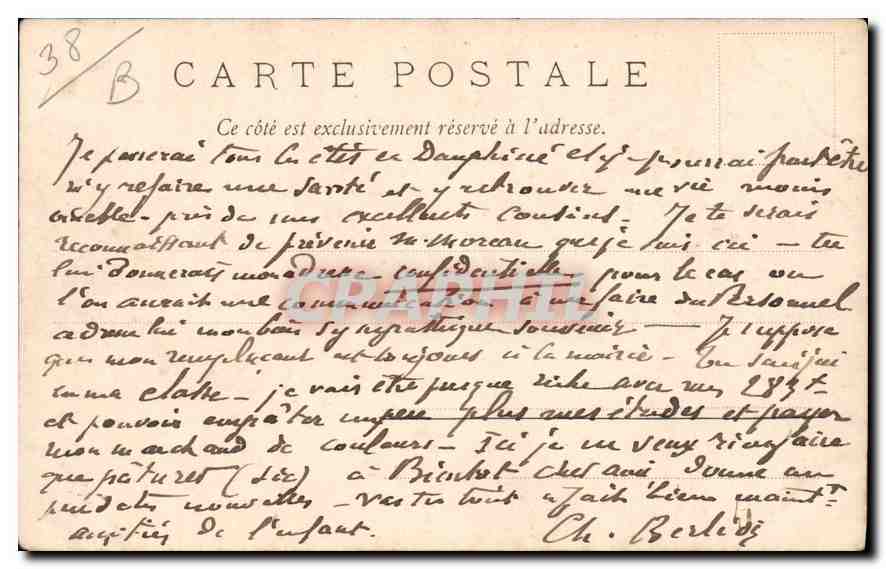 38
B
CARTE POSTALE
Ce côté est exclusivement réservé à l'adresse.
Je passerai tous les étés en Dauphiné et j'y pourrai peut être
m'y refaire une santé et y retrouver une vie moins
près de mes excellents cousins. Je te serais
reconnaissant de prévenir M. Moreau que je suis ici - tu
lui donnerais mon adresse confidentielle pour le cas où
l'on aurait une communication à me faire du Personnel
mon bon sympathique souvenir - Je suppose
que mon remplaçant est toujours à la mairie - Tu sais
classe - je vais être presque riche avec mes 283f
et pouvoir un peu plus mes études et payer
mon marchand de couleurs - Ici je ne veux rien faire
que pâturer (sic) à Bientôt donne
nouvelles - tout à fait bien
amitiés de l'enfant. Ch.
CPAPHIL